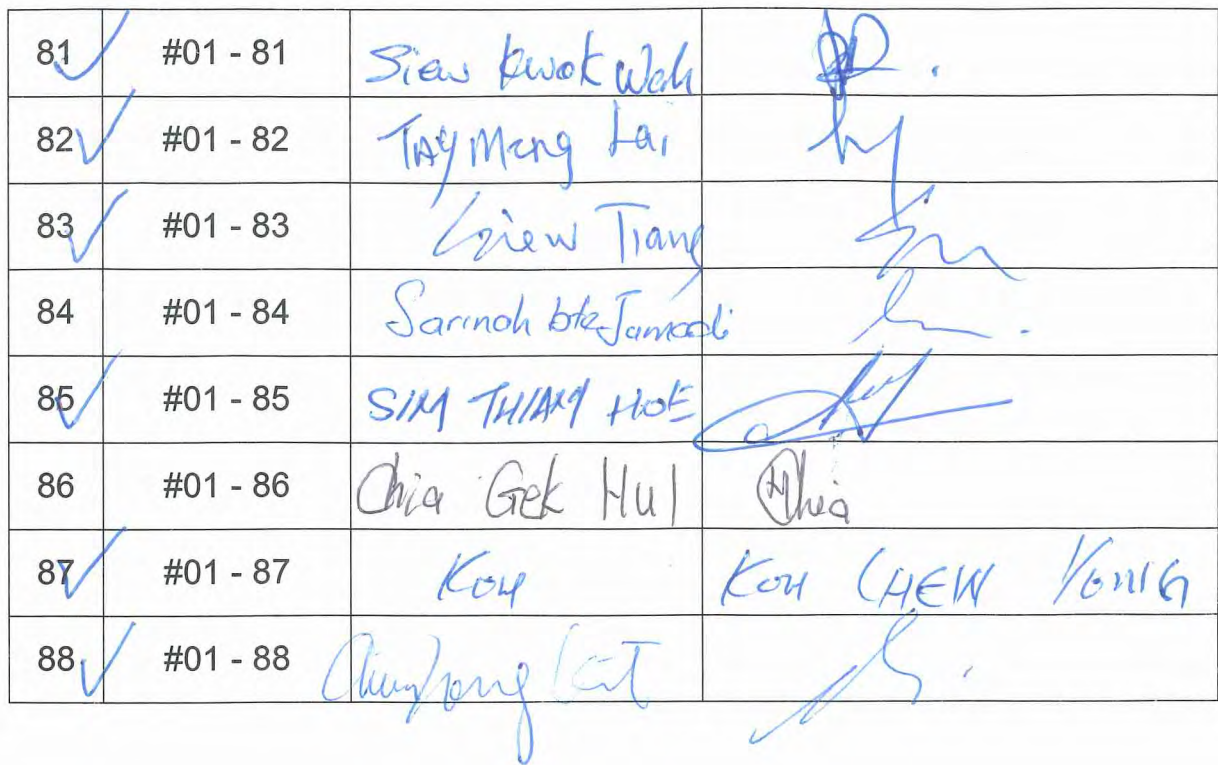 81 #01 - 81 Siew Kwok Wah
82 #01 - 82 TAY Meng Lai
83 #01 - 83 Liew Tiang
84 #01 - 84 Sarinah bte Jamadi
85 #01 - 85 SIM THIAM HOE
86 #01 - 86 Chia Gek HUI Chia
87 #01 - 87 KOH KOH CHEW YONG
88 #01 - 88